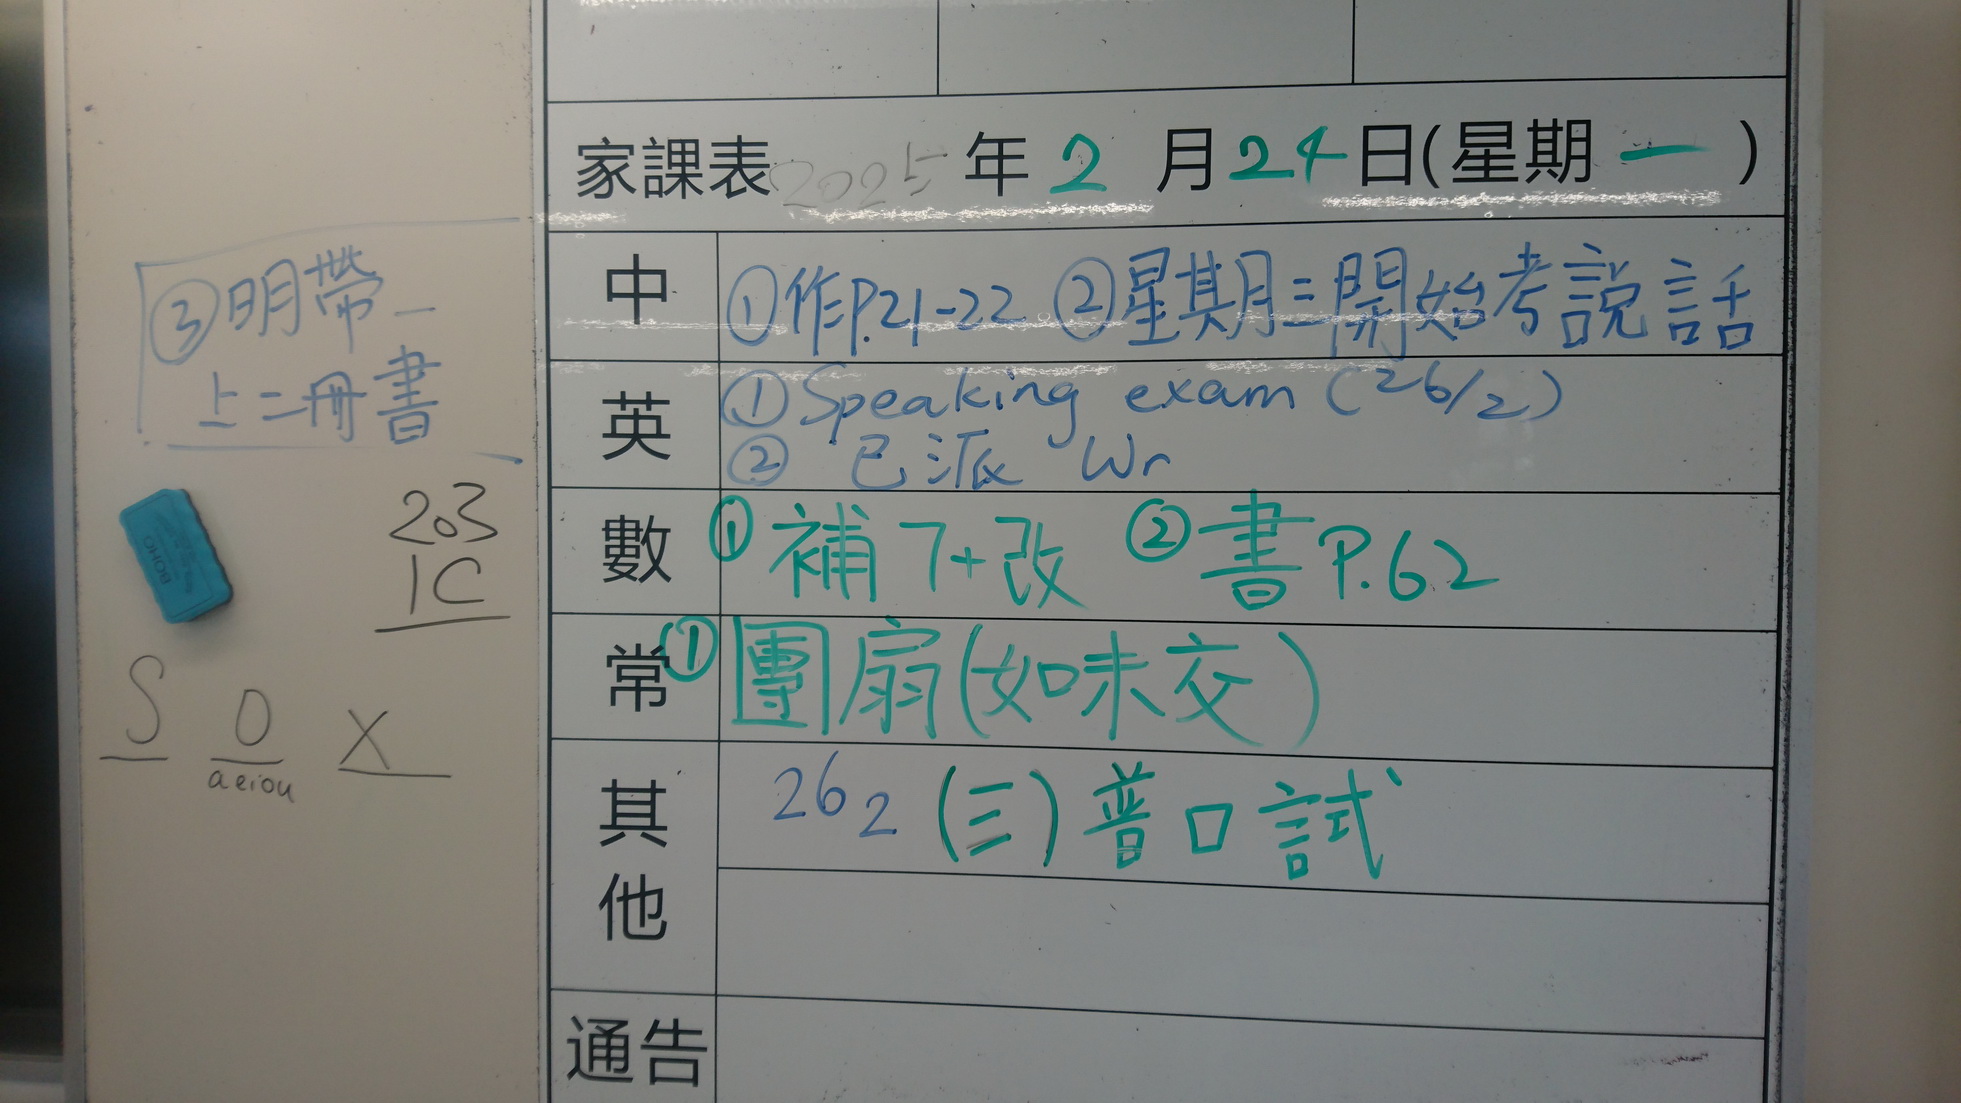 家課表 2025 年 2 月 24 日(星期 一 )
中 ①作P.21-22 ②星期三開始考說話
③明帶一
上二冊書
英 ①Speaking exam (26/2)
② 已派 Wr
數 ①補7+改 ②書P.62
常 ①團扇(如未交)
其他 26 2 (三)普口試
通告
203
1C
S O X
aeiou
BOHC